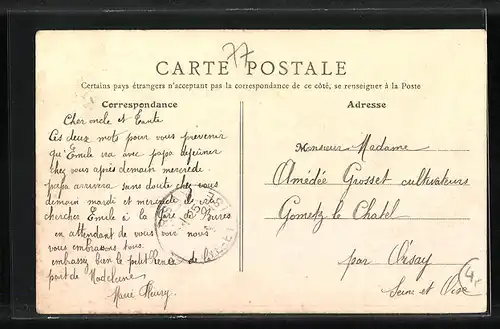 77
CARTE POSTALE
Certains pays étrangers n'acceptant pas la correspondance de ce côté, se renseigner à la Poste
Correspondance
Cher oncle et Tante
Ces deux mots pour vous prévenir
qu'Emile ira avec papa déjeuner
chez vous après demain mercredi
papa arrivera sans doute chez vous
demain mardi et mercredi ira
chercher Emile à la Gare de Bures
en attendant de vous voir nous
vous embrassons tous.
embrassez bien le petit René de la
part de Madeleine
Marie Fleury
Adresse
Monsieur Madame
Amédée Grosset cultivateurs
Gometz le Chatel
par Orsay
Seine et Oise
4,-